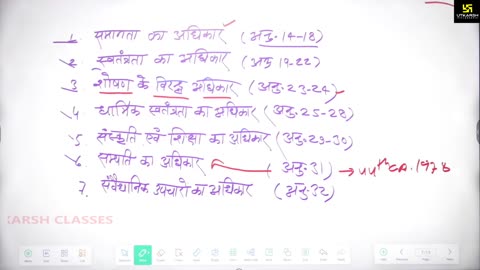 UTKARSH
1. समानता का अधिकार (अनु.14-18)
2 स्वतंत्रता का अधिकार (अनु 19-22)
3 शोषण के विरुद्ध अधिकार (अनु.23-24)
4 धार्मिक स्वतंत्रता का अधिकार (अनु.25-28)
5 संस्कृति एवं शिक्षा का अधिकार (अनु.29-30)
6 सम्पति का अधिकार (अनु.31) → 44th CA.1978
7. संवैधानिक उपचारो का अधिकार (अनु.32)
KARSH CLASSES